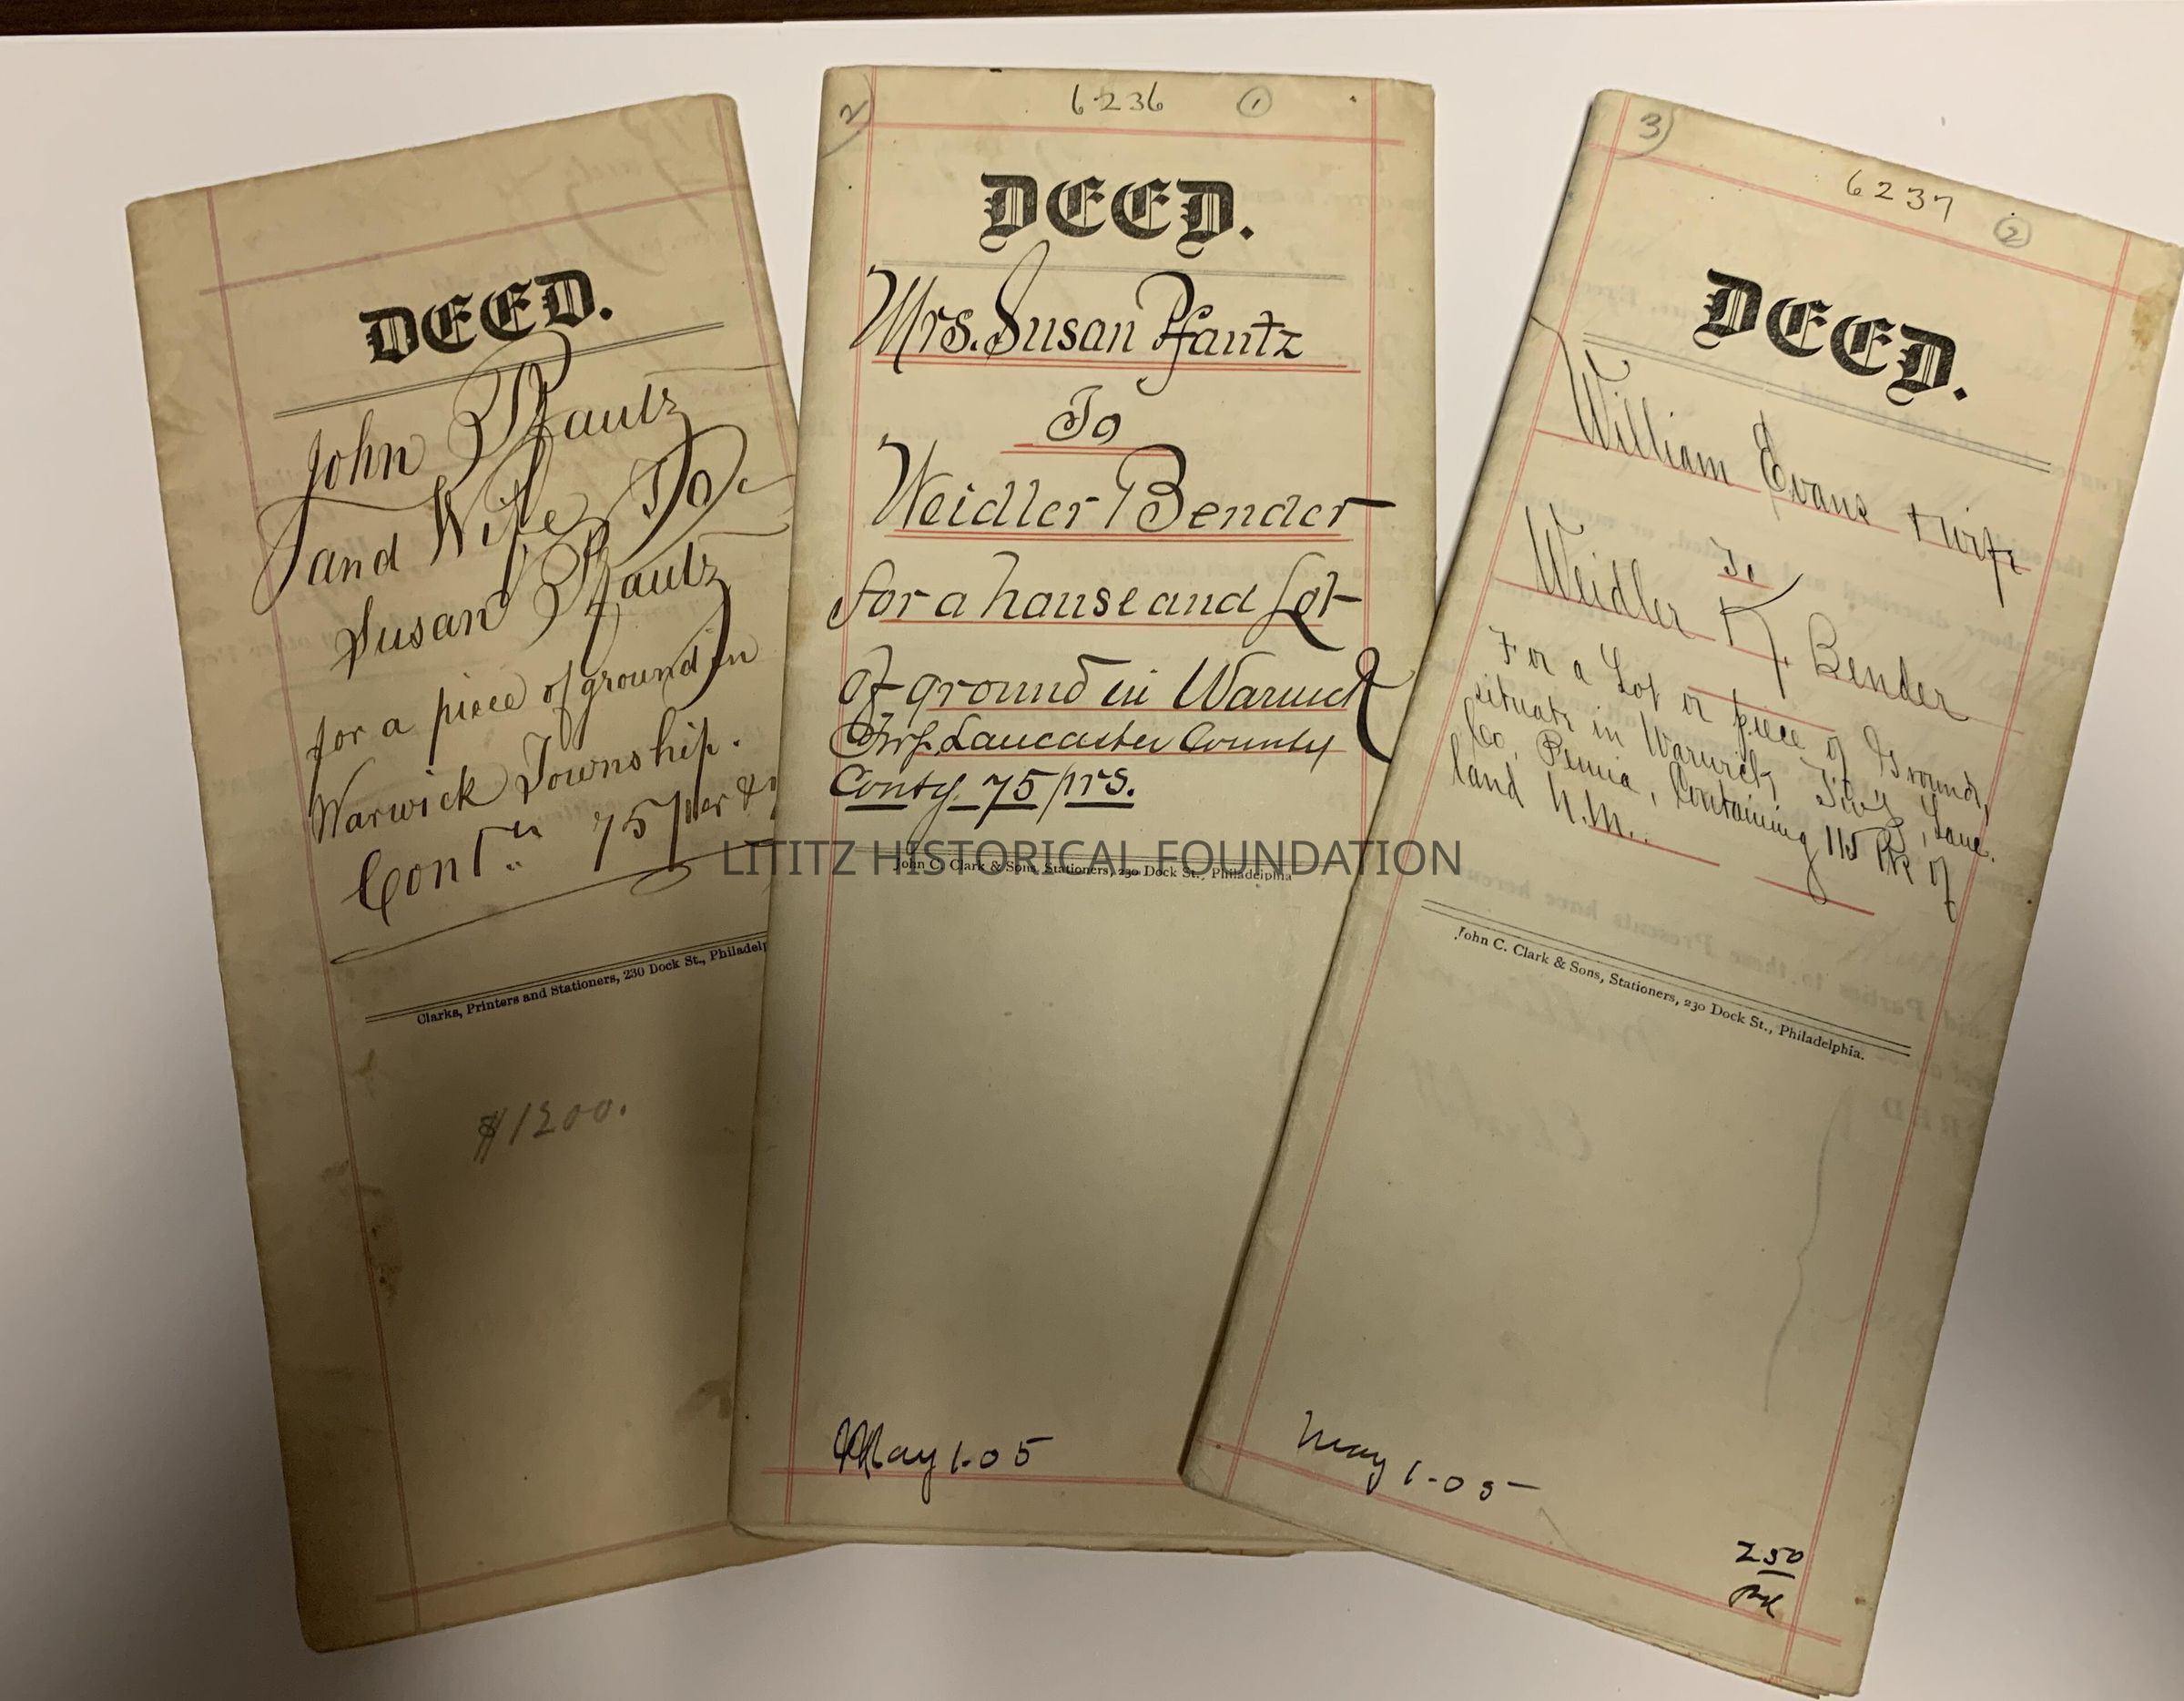 DEED.
John Pfautz
and Wife To
Susan Pfautz
for a piece of ground in
Warwick Township.
Cont.. 75 per
Clarks, Printers and Stationers, 230 Dock St., Philadelp
$1200.
2)
6236 1
DEED.
Mrs. Susan Pfautz
To
Weidler Bender
for a house and Lot
of ground in Warwick
Twp. Lancaster County
75 prs.
John C. Clark & Sons, Stationers, 230 Dock St., Philadelphia
May 1-05
3)
6237 2
DEED.
William Evans & wife
To
Weidler K. Bender
For a Lot or piece of Ground,
situate in Warwick Twp, Lanc.
Co. Penna, Containing 115 of
land N.M.
John C. Clark & Sons, Stationers, 230 Dock St., Philadelphia.
May 1-05
250
LITITZ HISTORICAL FOUNDATION